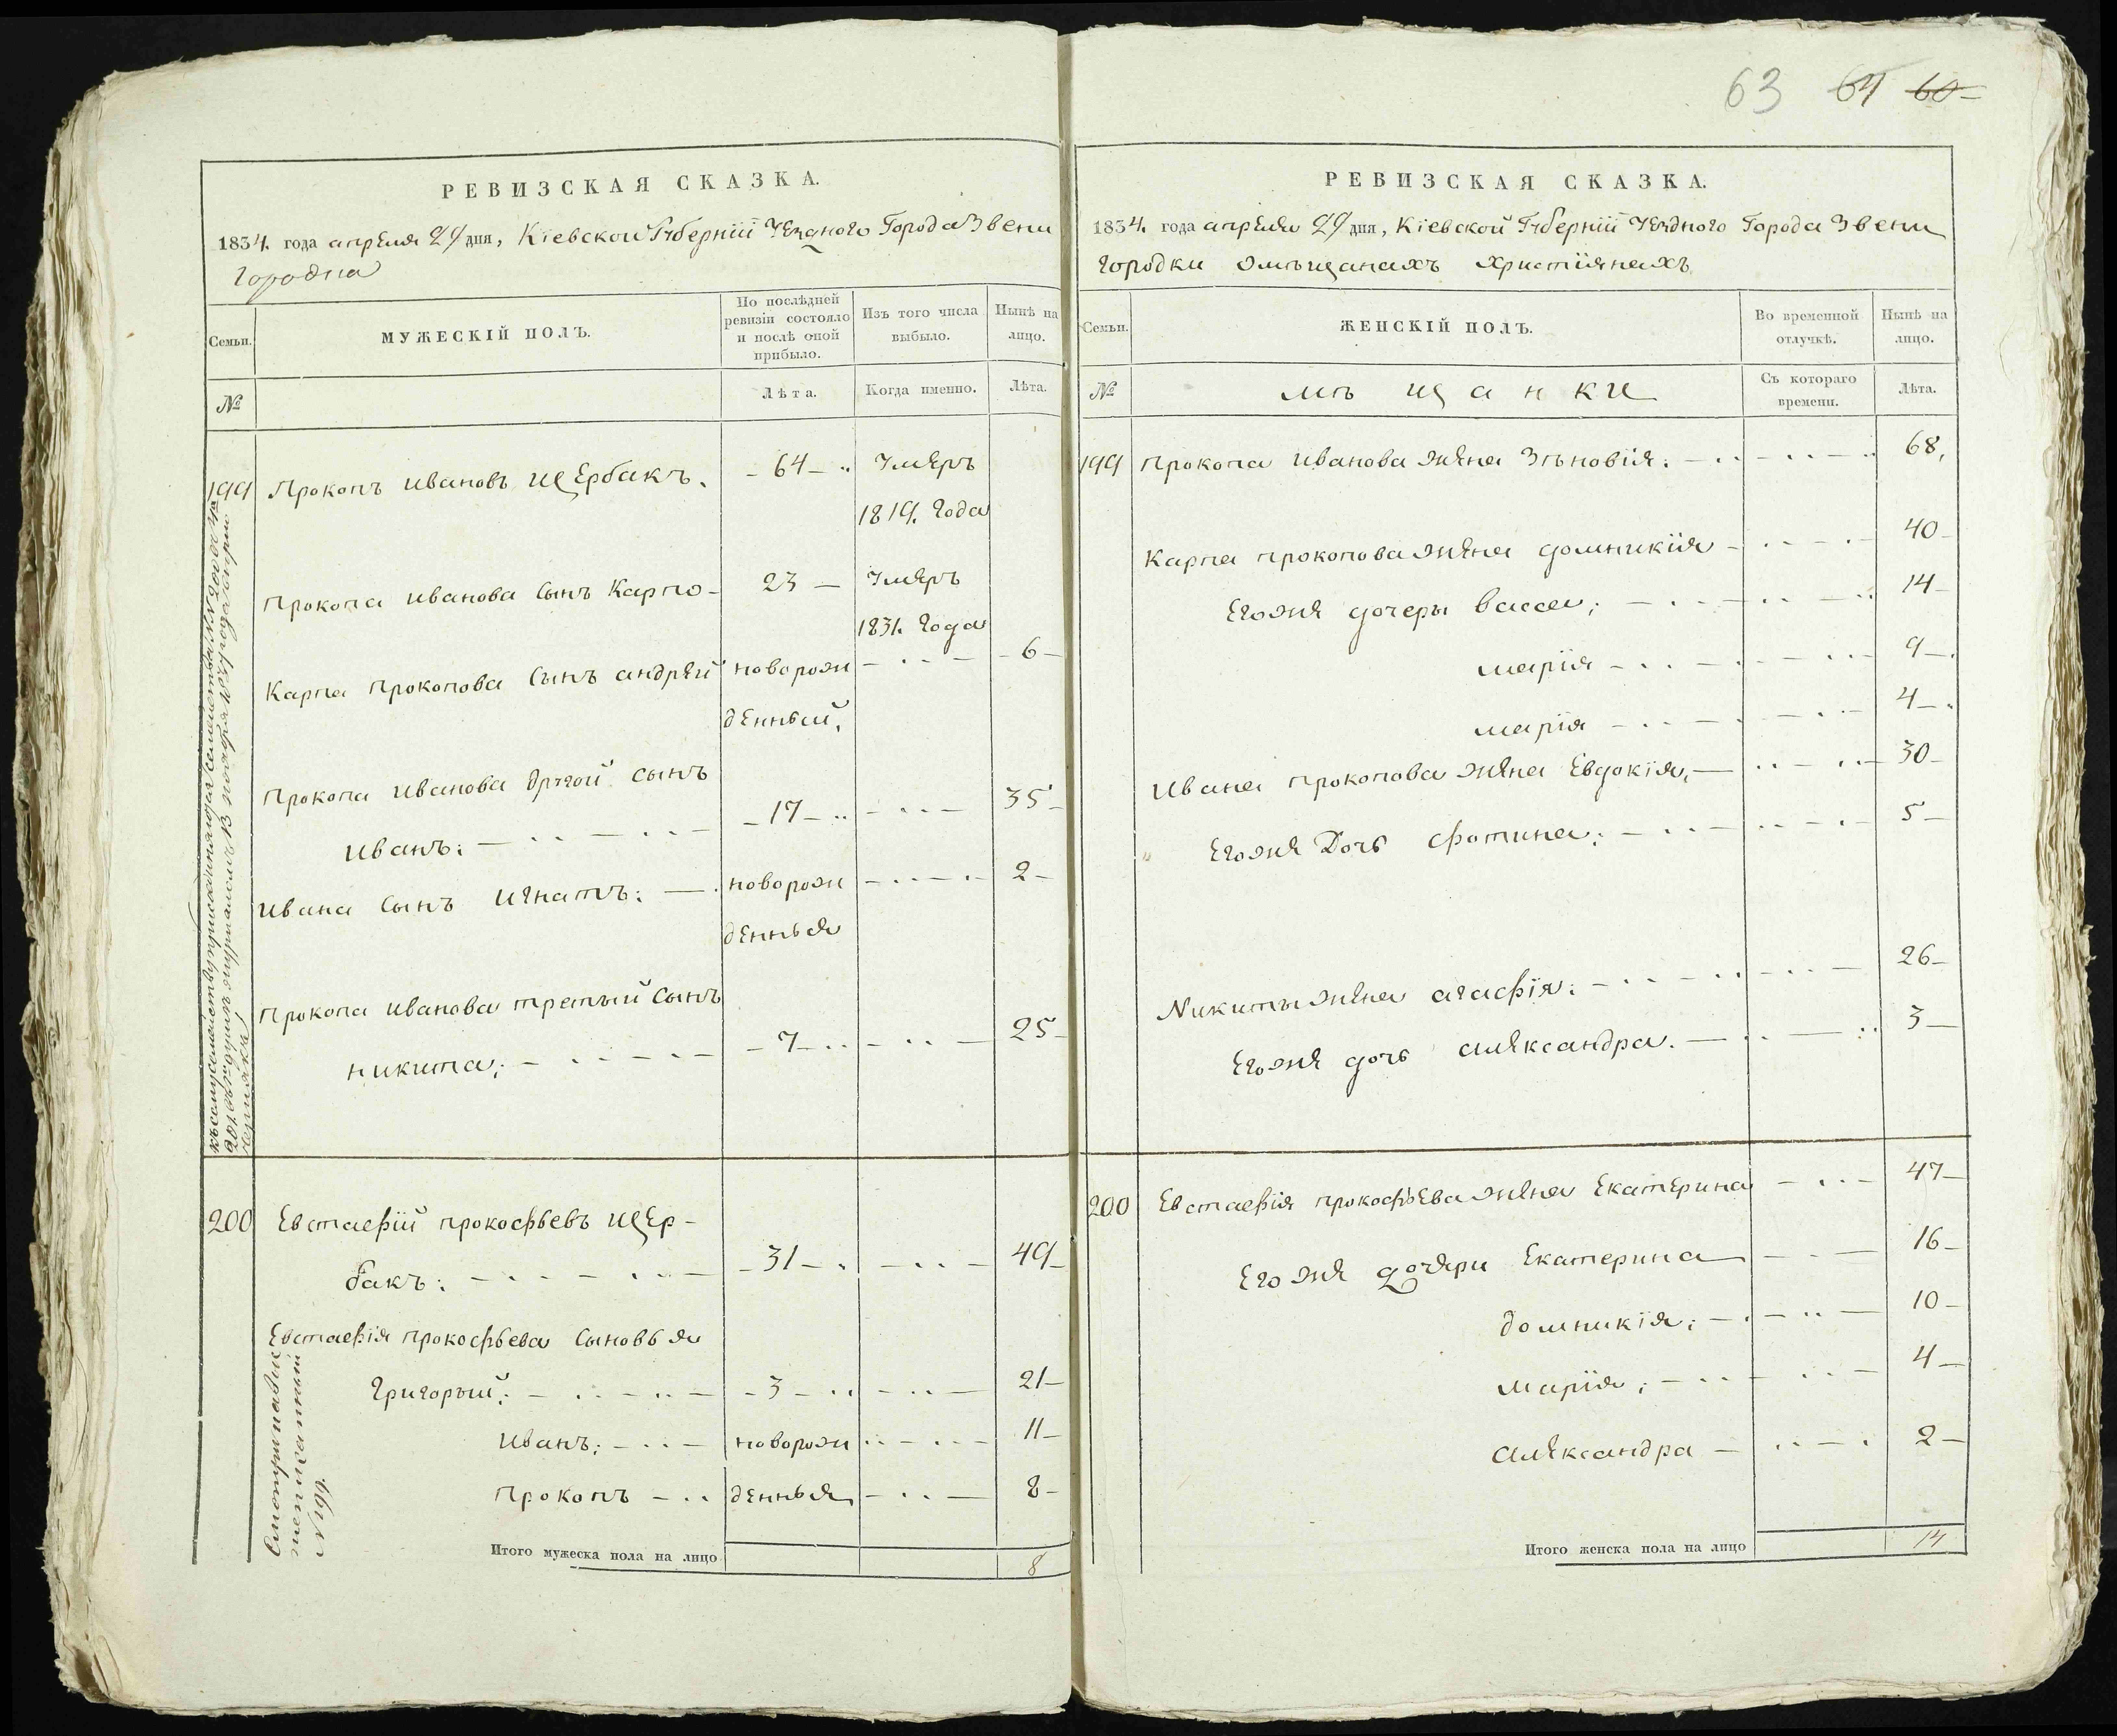 63 64 60
РЕВИЗСКАЯ СКАЗКА.
1834. года апреля 29 дня, Кіевской Губерніи Уезднаго Города Звени
городка
Семьи.
МУЖЕСКІЙ ПОЛЪ.
По послѣдней
ревизіи состояло
и послѣ оной
прибыло.
Изъ того числа
выбыло.
Нынѣ на
лицо.
№
Лѣта.
Когда именно.
Лѣта.
199 Прокопъ Ивановъ Щербакъ. 64 Умеръ
1819. Года
Прокопа Иванова Сынъ Карпо 23 Умеръ
1831. Года
Карпа Прокопова Сынъ андрей новорож 6
денный,
Прокопа Иванова другой Сынъ
Иванъ: 17 35
Ивана Сынъ Игнатъ: новорож 2
денныя
Прокопа Иванова третый Сынъ
никита; 7 25
200 Евстаефій прокофьевъ щер-
бакъ: 31 49
Евстаефія прокофьева Сыновья
Григорый; 3 21
Иванъ; новорож 11
Прокопъ денныя 8
Итого мужеска пола на лицо 8
№ 199.
РЕВИЗСКАЯ СКАЗКА.
1834. года апреля 29 дня, Кіевской Губерніи Уезднаго Города Звени
городки Омѣщанахъ христіянахъ
Семьи.
ЖЕНСКІЙ ПОЛЪ.
Во временной
отлучкѣ.
Нынѣ на
лицо.
№
мѣщанки
Съ котораго
времени.
Лѣта.
199 Прокопа Иванова жена Зѣновія. 68,
Карпа прокопова жена домникія 40
Егоже дочеры васса; 14
марія 9
марія 4
Ивана прокопова жена Евдокія, 30
Егоже Дочь фотина. 5
Никиты жена агафія. 26
Егоже дочь александра. 3
200 Евстаефія прокофьева жена Екатерина 47
Егоже дочери Екатерина 16
домникія; 10
марія; 4
александра 2
Итого женска пола на лицо 14